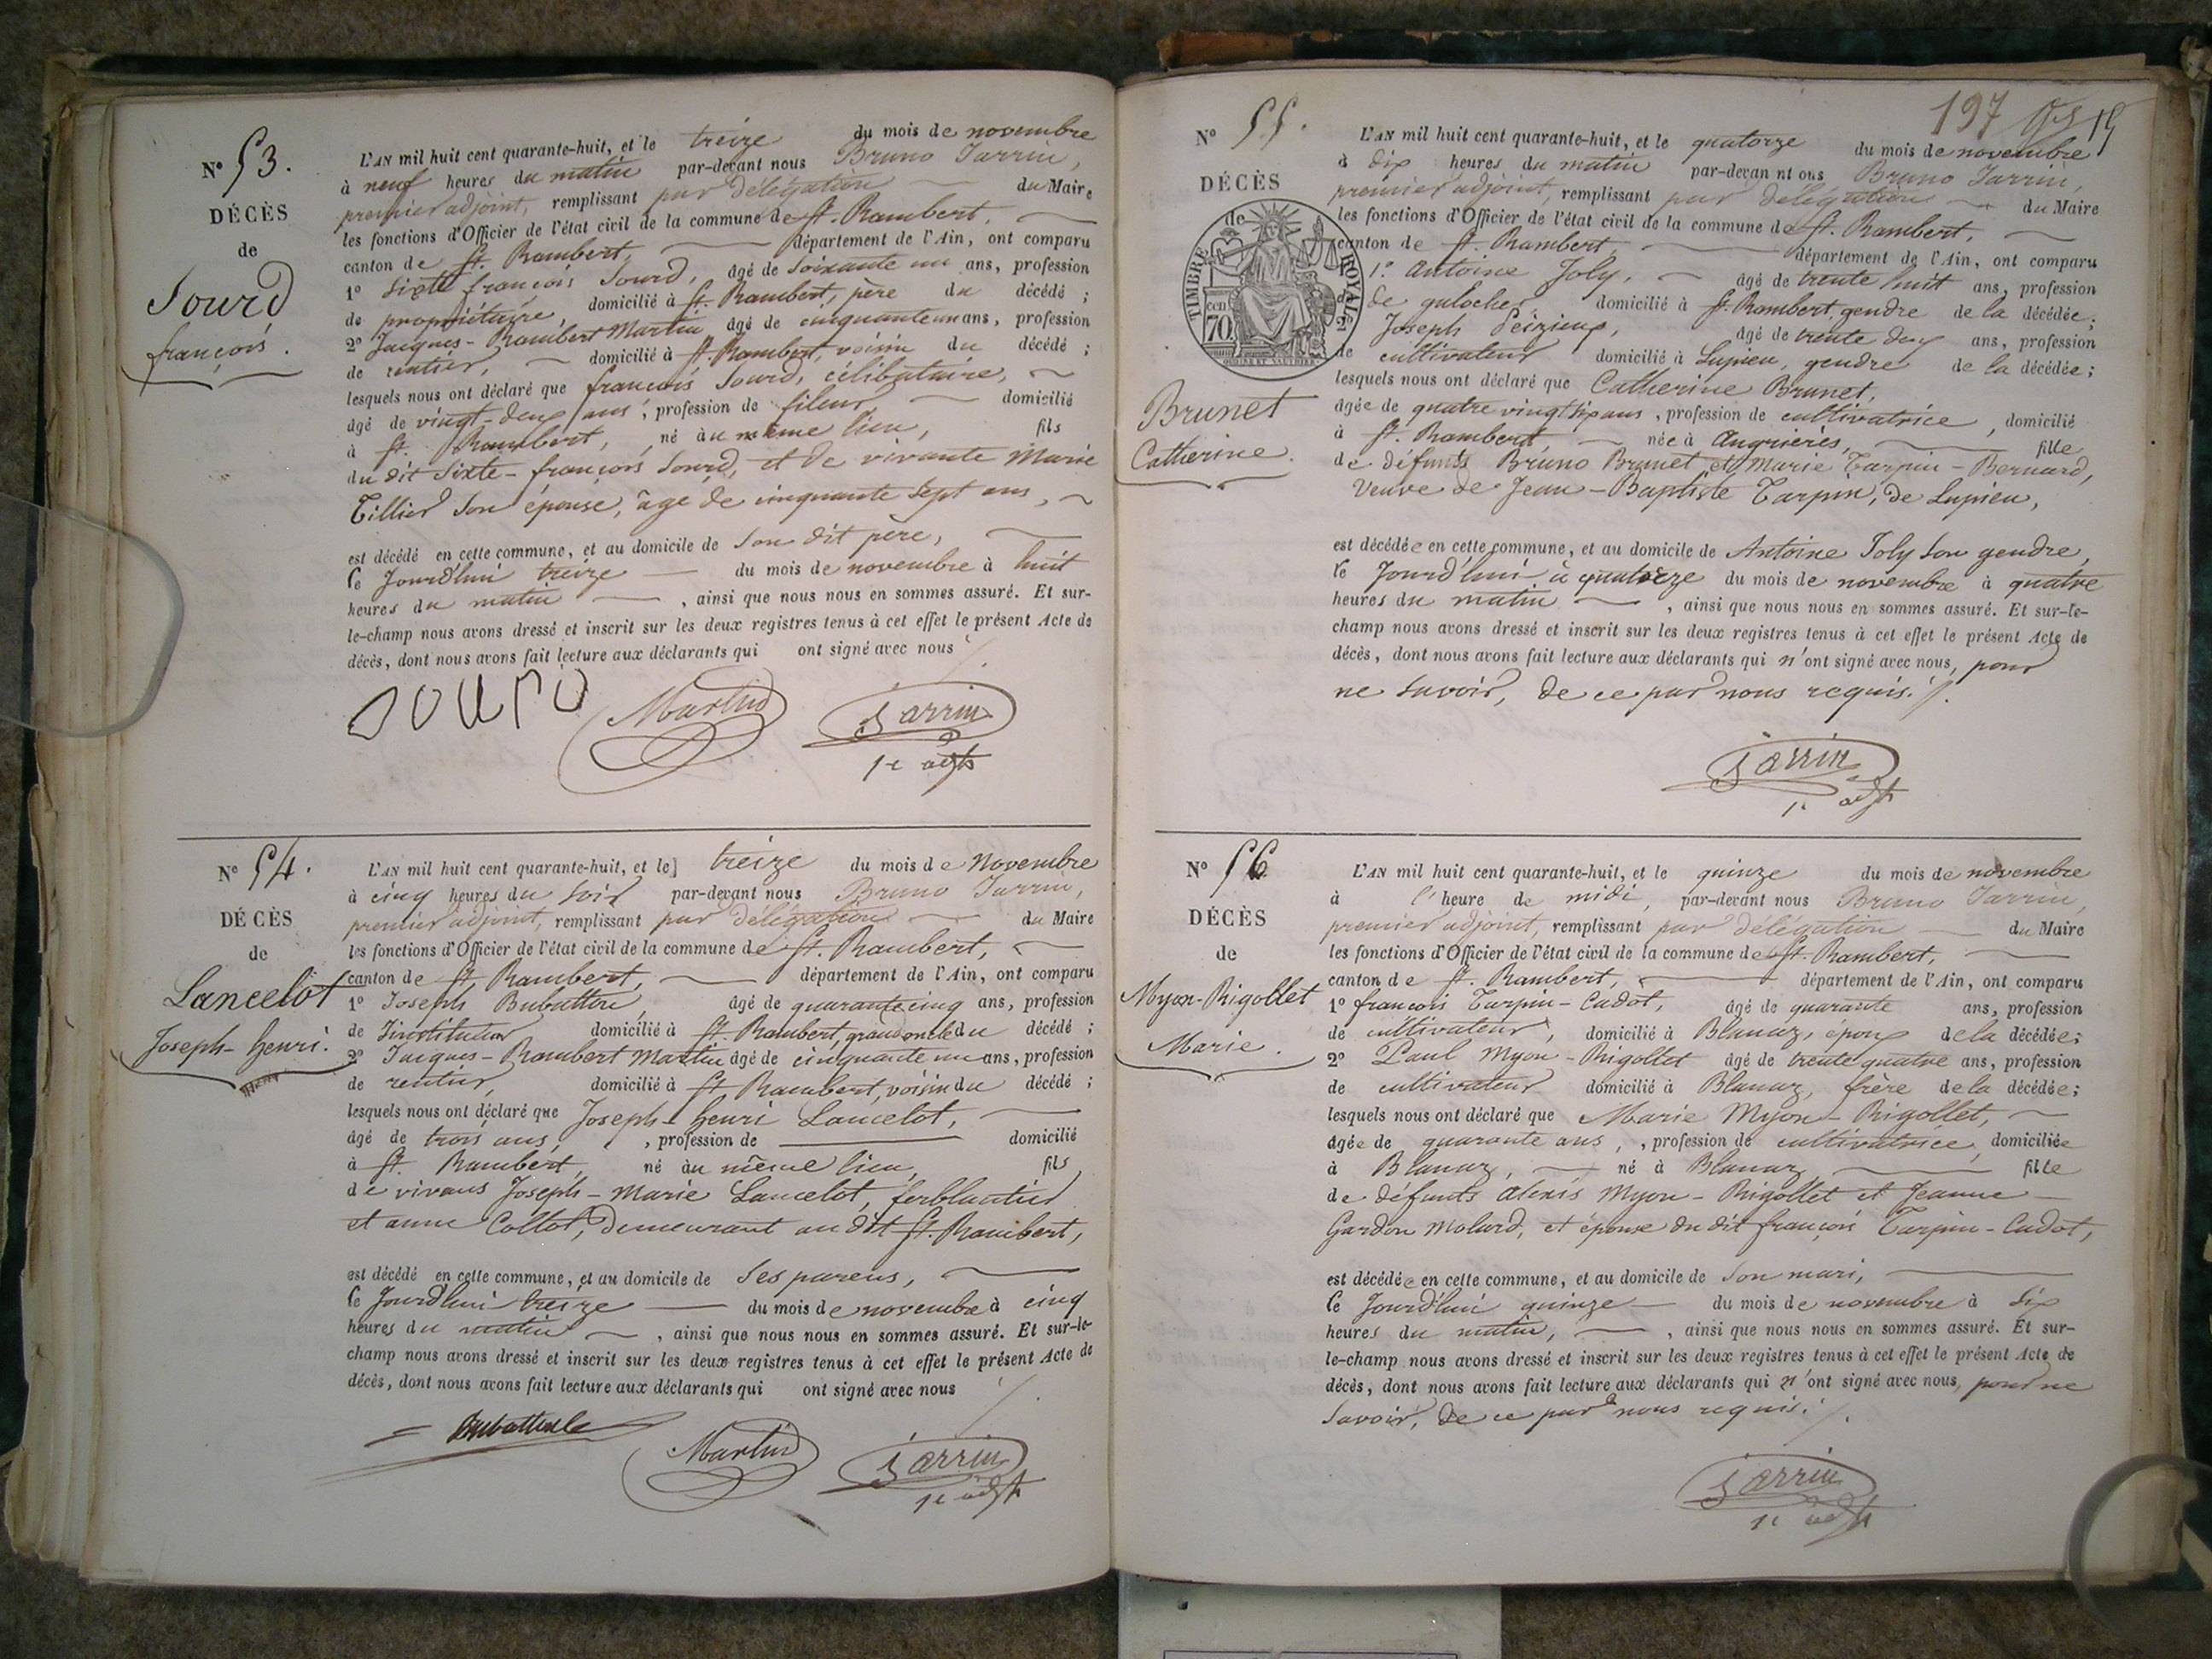 N° 53.
DÉCÈS
de
Sourd
françois.
L'AN mil huit cent quarante-huit, et le treize du mois de novembre
à neuf heures du matin par-devant nous Bruno Jarrin,
premier adjoint, remplissant par délégation du Maire
les fonctions d'Officier de l'état civil de la commune de St. Rambert,
canton de St. Rambert, département de l'Ain, ont comparu
1° Sixte françois Sourd, âgé de soixante un ans, profession
de propriétaire, domicilié à St. Rambert, père du décédé ;
2° Jacques-Rambert Martin âgé de cinquante un ans, profession
de rentier, domicilié à St. Rambert, voisin du décédé ;
lesquels nous ont déclaré que françois Sourd, célibataire,
âgé de vingt-deux ans, profession de fileur domicilié
à St. Rambert, né au même lieu, fils
du dit Sixte-françois Sourd, et de vivante Marie
Tillier son épouse, âgé de cinquante sept ans,
est décédé en cette commune, et au domicile de son dit père,
le Jourd'hui treize du mois de novembre à huit
heures du matin, ainsi que nous nous en sommes assuré. Et sur-
le-champ nous avons dressé et inscrit sur les deux registres tenus à cet effet le présent Acte de
décès, dont nous avons fait lecture aux déclarants qui ont signé avec nous
Sourd Martin Jarrin
1er adjt
N° 54.
DÉCÈS
de
Lancelot
Joseph-henri.
L'AN mil huit cent quarante-huit, et le treize du mois de Novembre
à cinq heures du soir par-devant nous Bruno Jarrin,
premier adjoint, remplissant par délégation du Maire
les fonctions d'Officier de l'état civil de la commune de St. Rambert,
canton de St. Rambert, département de l'Ain, ont comparu
1° Joseph âgé de quarante cinq ans, profession
de Jinstituteur domicilié à St. Rambert, grand oncle du décédé ;
2° Jacques-Rambert Martin âgé de cinquante un ans, profession
de rentier, domicilié à St Rambert, voisin du décédé ;
lesquels nous ont déclaré que Joseph-henri Lancelot,
âgé de trois ans, profession de domicilié
à St. Rambert, né au même lieu, fils
de vivans Joseph-Marie Lancelot, ferblantier
et anne Collot, demeurant au dit St. Rambert,
est décédé en cette commune, et au domicile de ses parens,
le Jourd'hui treize du mois de novembre à cinq
heures du matin, ainsi que nous nous en sommes assuré. Et sur-le-
champ nous avons dressé et inscrit sur les deux registres tenus à cet effet le présent Acte de
décès, dont nous avons fait lecture aux déclarants qui ont signé avec nous
Martin Jarrin
1er adjt
197
N° 55.
DÉCÈS
de
TIMBRE ROYAL
70 cen
Brunet
Catherine.
L'AN mil huit cent quarante-huit, et le quatorze du mois de novembre
à dix heures du matin par-devan nt ous Bruno Jarrin,
premier adjoint, remplissant par délégation du Maire
les fonctions d'Officier de l'état civil de la commune de St. Rambert,
canton de St. Rambert, département de l'Ain, ont comparu
1° Antoine Joly, âgé de trente huit ans, profession
de galocher domicilié à St. Rambert, gendre de la décédée ;
2° Joseph Peizieux, âgé de trente deux ans, profession
de cultivateur domicilié à Lupieu, gendre de la décédée ;
lesquels nous ont déclaré que Catherine Brunet,
âgée de quatre vingt six ans, profession de cultivatrice, domicilié
à St. Rambert née à Angrières, fille
de défunts Bruno Brunet, et Marie Tarpin-Bernard,
Veuve de Jean-Baptiste Tarpin, de Lupieu,
est décédée en cette commune, et au domicile de Antoine Joly son gendre,
le Jourd'hui à quatorze du mois de novembre à quatre
heures du matin, ainsi que nous nous en sommes assuré. Et sur-le-
champ nous avons dressé et inscrit sur les deux registres tenus à cet effet le présent Acte de
décès, dont nous avons fait lecture aux déclarants qui n'ont signé avec nous, pour
ne savoir, de ce par nous requis.
Jarrin
1er adjt
N° 56
DÉCÈS
de
Myon-Rigollet
Marie.
L'AN mil huit cent quarante-huit, et le quinze du mois de novembre
à l'heure de midi, par-devant nous Bruno Jarrin,
premier adjoint, remplissant par délégation du Maire
les fonctions d'Officier de l'état civil de la commune de St. Rambert,
canton de St. Rambert, département de l'Ain, ont comparu
1° françois Tarpin-Cadot, âgé de quarante ans, profession
de cultivateur, domicilié à Blanaz, époux de la décédée ;
2° Paul Myon-Rigollet âgé de trente quatre ans, profession
de cultivateur domicilié à Blanaz, frère de la décédée ;
lesquels nous ont déclaré que Marie Myon-Rigollet,
âgée de quarante ans, profession de cultivatrice, domiciliée
à Blanaz, né à Blanaz fille
de défunts alexis Myon-Rigollet et Jeanne
Gardon Molard, et épouse du dit françois Tarpin-Cadot,
est décédée en cette commune, et au domicile de son mari,
le Jourd'hui quinze du mois de novembre à six
heures du matin, ainsi que nous nous en sommes assuré. Et sur-
le-champ nous avons dressé et inscrit sur les deux registres tenus à cet effet le présent Acte de
décès, dont nous avons fait lecture aux déclarants qui n'ont signé avec nous, pour ne
savoir, de ce par nous requis.
Jarrin
1er adjt